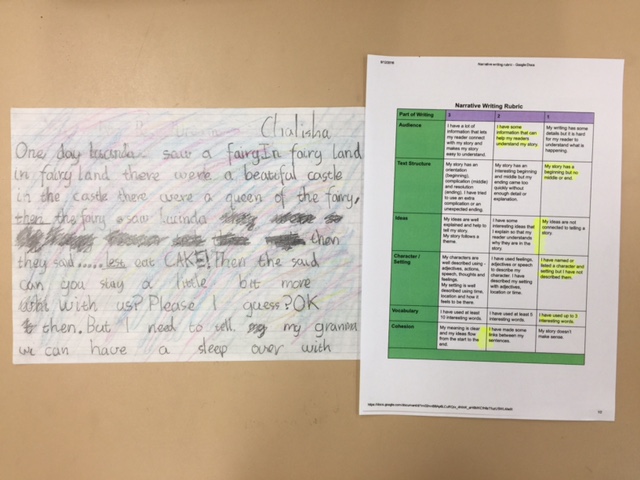 Chulisha
One day Lucinda saw a fairy In fairy land
in fairy land there were a beatiful castle
in the castle there were a queen of the fairy,
then the fairy saw lucinda
then
they said..... lest eat CAKE! Then the said
can you stay a little bit more
with us? Please I guess? OK
then. But I need to tell my granma
we can have a sleep over with
Narrative writing rubric - Google Docs
Narrative Writing Rubric
Part of Writing 3 2 1
Audience
I have a lot of information that lets my reader connect with my story and makes my story easy to understand.
I have some information that can help my readers understand my story.
My writing has some details but it is hard for my reader to understand what is happening.
Text Structure
My story has an orientation (beginning), complication (middle) and resolution (ending). I have tried to use an extra complication or an unexpected ending.
My story has an interesting beginning and middle but my ending came too quickly without enough detail or explanation.
My story has a beginning but no middle or end.
Ideas
My ideas are well explained and help to tell my story. My story follows a theme.
I have some interesting ideas that I explain so that my reader understands why they are in the story.
My ideas are not connected to telling a story.
Character / Setting
My characters are well described using - adjectives, actions, speech, thoughts and feelings. My setting is well described using time, location and how it feels to be there.
I have used feelings, adjectives or speech to describe my character. I have described my setting with adjectives, location or time.
I have named or listed a character and setting but I have not described them.
Vocabulary
I have used at least 10 interesting words.
I have used at least 5 interesting words.
I have used up to 3 interesting words.
Cohesion
My meaning is clear and my ideas flow from the start to the end.
I have made some links between my sentences.
My story doesn't make sense.